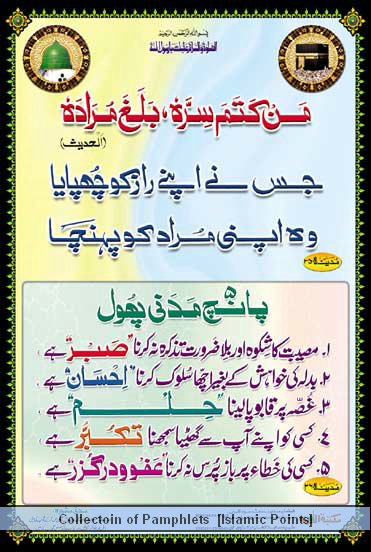 بِسْمِ اللهِ الرَّحْمٰنِ الرَّحِيْمِ
مَنْ كَتَمَ سِرَّهٗ، بَلَغَ مُرَادَهٗ
(الحدیث)
جس نے اپنے راز کو چُھپایا
وہ اپنی مراد کو پہنچا
مدینہ ۳۵
پانچ مَدَنی پھول
۱. مصیبت کا شِکوہ اور بلا ضرورت تذکرہ نہ کرنا "صَبْر" ہے ،
۲. بدلہ کی خواہش کے بغیر اچھا سلوک کرنا "اِحْسَان" ہے ،
۳. غصّہ پر قابو پالینا "حِلْم" ہے ،
٤. کسی کو اپنے آپ سے گھٹیا سمجھنا تکبُّر ہے ،
۵. کسی کی خطاء پر باز پُرس نہ کرنا "عَفْو و درگزر" ہے ،
Collectoin of Pamphlets [Islamic Points]